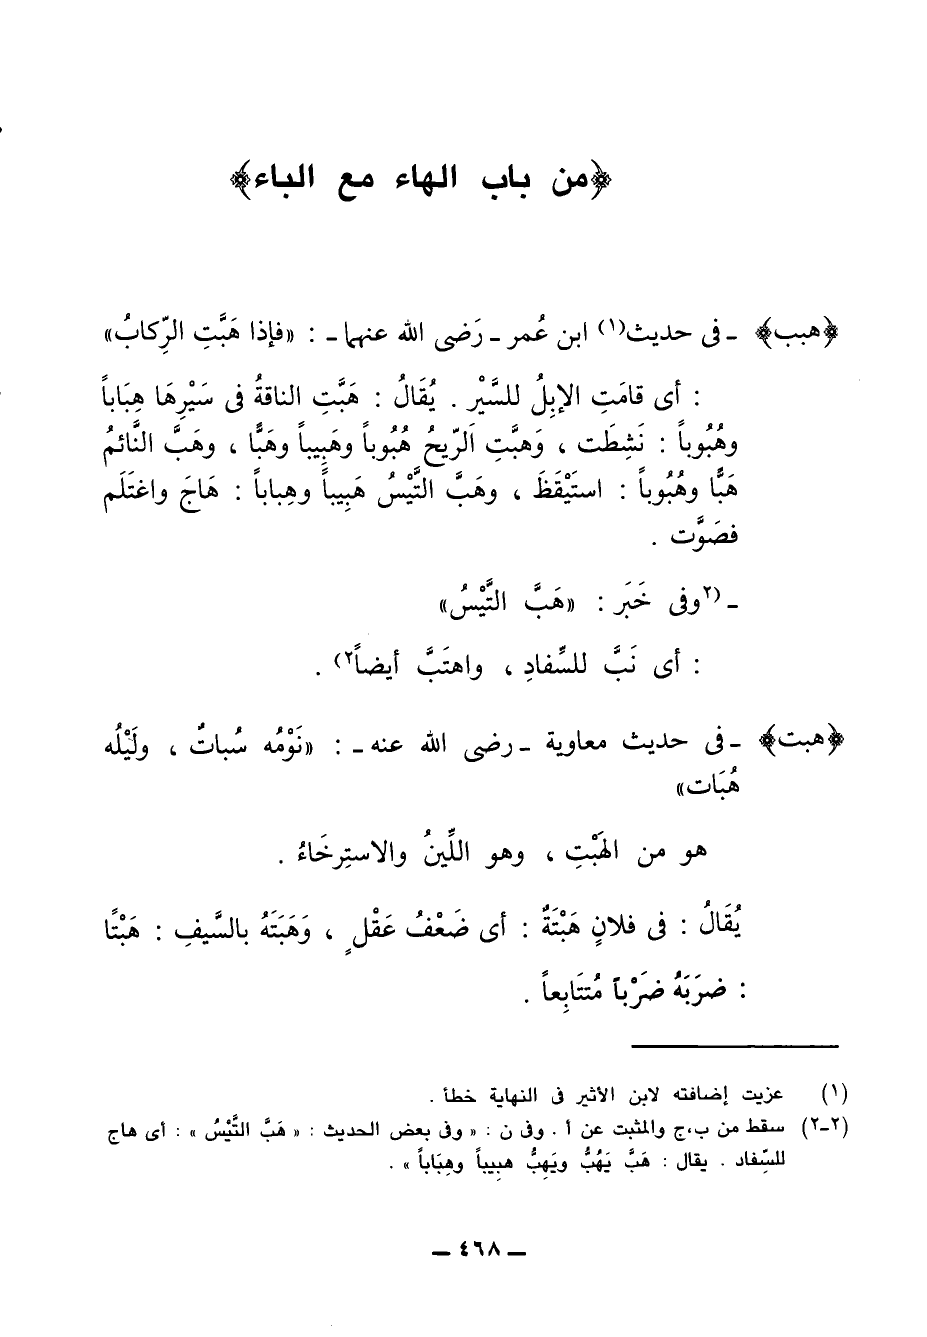 ﴿من باب الهاء مع الباء﴾
﴿هبب﴾ ـ فى حديث(١) ابن عُمر ـ رَضى الله عنهما ـ : «فإذا هَبَّتِ الرِّكابُ»
: أى قامَتِ الإبِلُ للسَّيْر . يُقَالُ : هَبَّتِ الناقةُ فى سَيْرِهَا هِبَاباً
وهُبُوباً : نَشِطَت ، وَهبَّتِ الرّيحُ هُبُوباً وهَبِيباً وهَبًّا ، وهَبَّ النَّائمُ
هَبًّا وهُبُوباً : استَيْقَظَ ، وهَبَّ التَّيْسُ هَبِيباً وهِباباً : هَاجَ واغتَلَم
فصَوَّت .
ـ (٢وفى خَبَر : «هَبَّ التَّيْسُ»
: أى نَبَّ للسِّفادِ ، واهتَبَّ أيضاً٢) .
﴿هبت﴾ ـ فى حديث معاوية ـ رضى الله عنه ـ : «نَوْمُه سُباتٌ ، ولَيْلُه
هُبَات»
هو من الهَبْتِ ، وهو اللِّينُ والاسترخَاءُ .
يُقَالُ : فى فلانٍ هَبْتَةٌ : أى ضَعْفُ عَقْلٍ ، وَهَبَتَهُ بالسَّيفِ : هَبْتًا
: ضرَبَهُ ضَرْباً مُتتَابِعاً .
(١) عزيت إضافته لابن الأثير فى النهاية خطأ .
(٢ـ٢) سقط من ب،ج والمثبت عن أ . وفى ن : « وفى بعض الحديث : « هَبَّ التَّيْسُ » : أى هاج
للسِّفاد . يقال : هَبَّ يَهُبُّ ويَهِبُّ هبيباً وهِبَاباً » .
ـ ٤٦٨ ـ